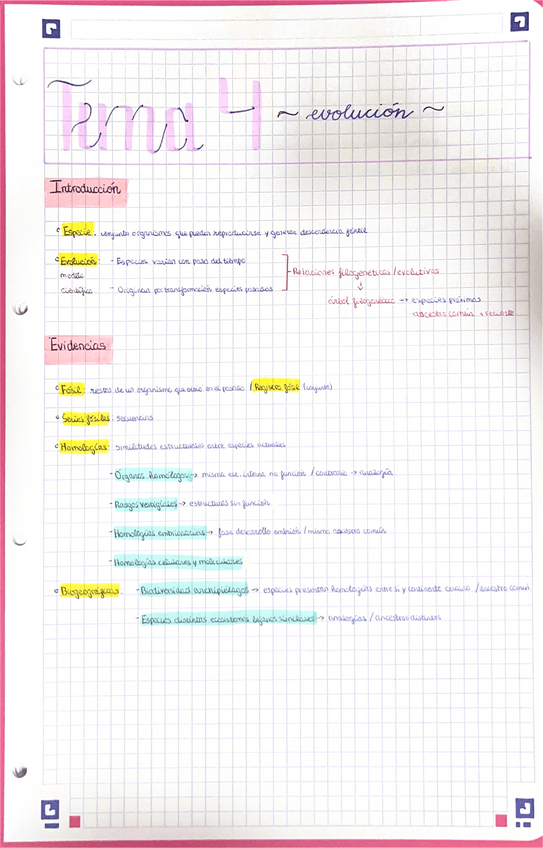 Tema 4 ~ evolución ~
Introducción
Especie: conjunto organismos que pueden reproducirse y generar descendencia fértil
Evolución: - Especies varían con paso del tiempo
modelo
científico - Originan por transformación especies pasadas
Relaciones filogenéticas / evolutivas
árbol filogenético → especies próximas
ancestro común + reciente
Evidencias
Fósil: restos de un organismo que vivió en el pasado / Registro fósil (conjunto)
Series fósiles: secuencias
Homologías: similitudes estructurales entre especies actuales
- Órganos homólogos → misma est. interna no función / contrario → analogía
- Rasgos vestigiales → estructuras sin función
- Homologías embrionarias → fase desarrollo embrión / mismo ancestro común
- Homologías celulares y moleculares
Biogeográficas: - Biodiversidad archipiélagos → especies presentan homologías entre sí y continente cercano / ancestro común
- Especies distintas ecosistemas lejanos similares → analogías / ancestros distintos